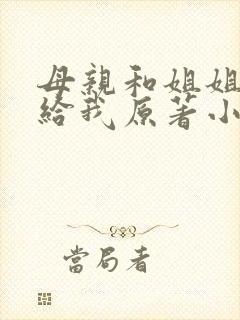 母親和姐姐
給我原著小
當局者